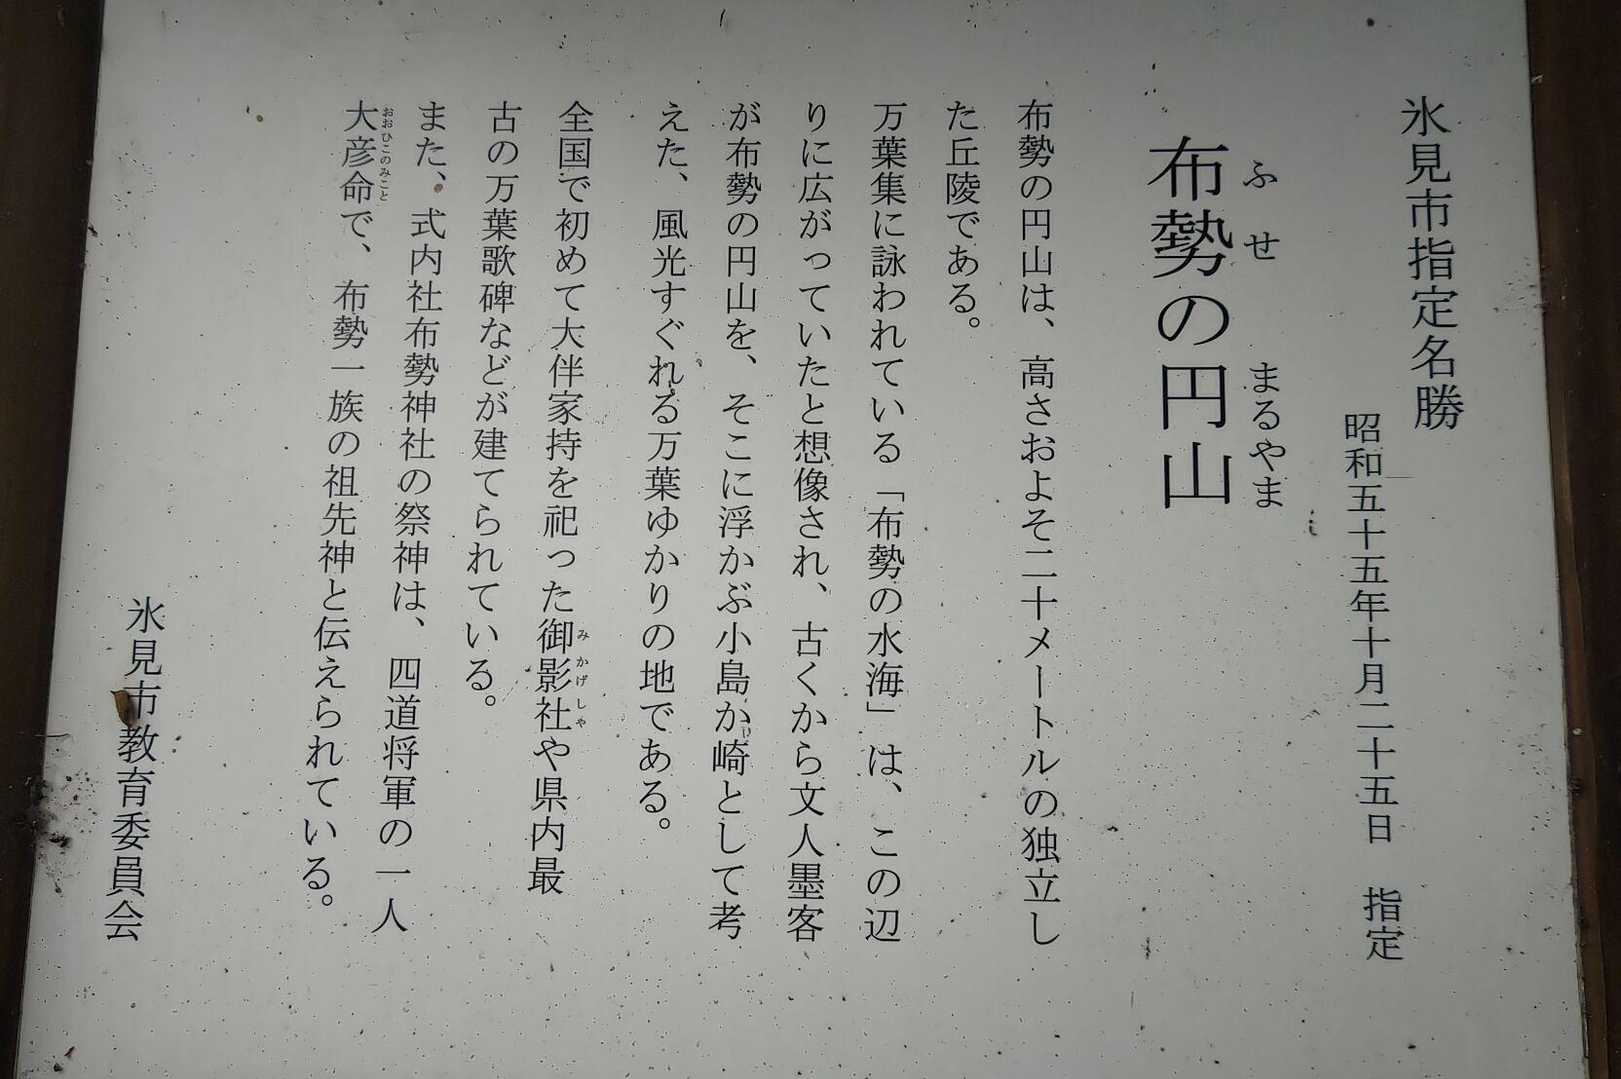 氷見市指定名勝
昭和五十五年十月二十五日　指定
布勢の円山
ふせ　まるやま
布勢の円山は、高さおよそ二十メートルの独立し
た丘陵である。
万葉集に詠われている「布勢の水海」は、この辺
りに広がっていたと想像され、古くから文人墨客
が布勢の円山を、そこに浮かぶ小島か崎として考
えた、風光すぐれる万葉ゆかりの地である。
全国で初めて大伴家持を祀った御影社や県内最
みかげしや
古の万葉歌碑などが建てられている。
また、式内社布勢神社の祭神は、四道将軍の一人
大彦命で、布勢一族の祖先神と伝えられている。
おおひこのみこと
氷見市教育委員会